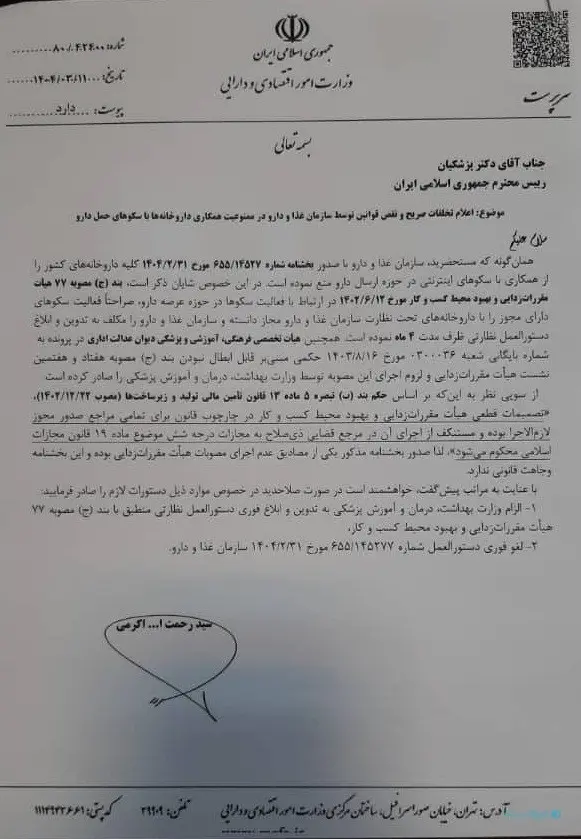 جمهوری اسلامی ایران
وزارت امور اقتصادی و دارایی
سرپرست
شماره: ۸۰/۴۲۴۰۰
تاریخ: ۱۴۰۴/۰۳/۱۱
پیوست: دارد
بسمه تعالی
جناب آقای دکتر پزشکیان
رییس محترم جمهوری اسلامی ایران
موضوع: اعلام تخلفات صریح و نقض قوانین توسط سازمان غذا و دارو در ممنوعیت همکاری داروخانه‌ها با سکوهای حمل دارو
سلام علیکم
همان‌گونه که مستحضرید، سازمان غذا و دارو با صدور بخشنامه شماره ۶۵۵/۱۴۵۲۷ مورخ ۱۴۰۴/۲/۳۱ کلیه داروخانه‌های کشور را
از همکاری با سکوهای اینترنتی در حوزه ارسال دارو منع نموده است. در این خصوص شایان ذکر است، بند (ج) مصوبه ۷۷ هیأت
مقررات‌زدایی و بهبود محیط کسب و کار مورخ ۱۴۰۲/۶/۱۲ در ارتباط با فعالیت سکوها در حوزه عرضه دارو، صراحتاً فعالیت سکوهای
دارای مجوز را با داروخانه‌های تحت نظارت سازمان غذا و دارو مجاز دانسته و سازمان غذا و دارو را مکلف به تدوین و ابلاغ
دستورالعمل نظارتی ظرف مدت ۴ ماه نموده است. همچنین هیأت تخصصی فرهنگی، آموزشی و پزشکی دیوان عدالت اداری در پرونده به
شماره بایگانی شعبه ۰۳۰۰۰۳۶ مورخ ۱۴۰۳/۸/۱۶ حکمی مبنی‌بر قابل ابطال نبودن بند (ج) مصوبه هفتاد و هفتمین
نشست هیأت مقررات‌زدایی و لزوم اجرای این مصوبه توسط وزارت بهداشت، درمان و آموزش پزشکی را صادر کرده است
از سویی نظر به این‌که بر اساس حکم بند (ب) تبصره ۵ ماده ۱۳ قانون تأمین مالی تولید و زیرساخت‌ها (مصوب ۱۴۰۲/۱۲/۲۲)،
«تصمیمات قطعی هیأت مقررات‌زدایی و بهبود محیط کسب و کار در چارچوب قانون برای تمامی مراجع صدور مجوز
لازم‌الاجرا بوده و مستنکف از اجرای آن در مرجع قضایی ذی‌صلاح به مجازات درجه شش موضوع ماده ۱۹ قانون مجازات
اسلامی محکوم می‌شود»، لذا صدور بخشنامه مذکور یکی از مصادیق عدم اجرای مصوبات هیأت مقررات‌زدایی بوده و این بخشنامه
وجاهت قانونی ندارد.
با عنایت به مراتب پیش‌گفت، خواهشمند است در صورت صلاحدید در خصوص موارد ذیل دستورات لازم را صادر فرمایید:
۱- الزام وزارت بهداشت، درمان و آموزش پزشکی به تدوین و ابلاغ فوری دستورالعمل نظارتی منطبق با بند (ج) مصوبه ۷۷
هیأت مقررات‌زدایی و بهبود محیط کسب و کار،
۲- لغو فوری دستورالعمل شماره ۶۵۵/۱۴۵۲۷۷ مورخ ۱۴۰۴/۲/۳۱ سازمان غذا و دارو.
سید رحمت ا... اکرمی
آدرس: تهران، خیابان صوراسرافیل، ساختمان مرکزی وزارت امور اقتصادی و دارایی تلفن: ۳۹۹۰۹ کدپستی: ۱۱۱۴۹۴۳۶۶۱